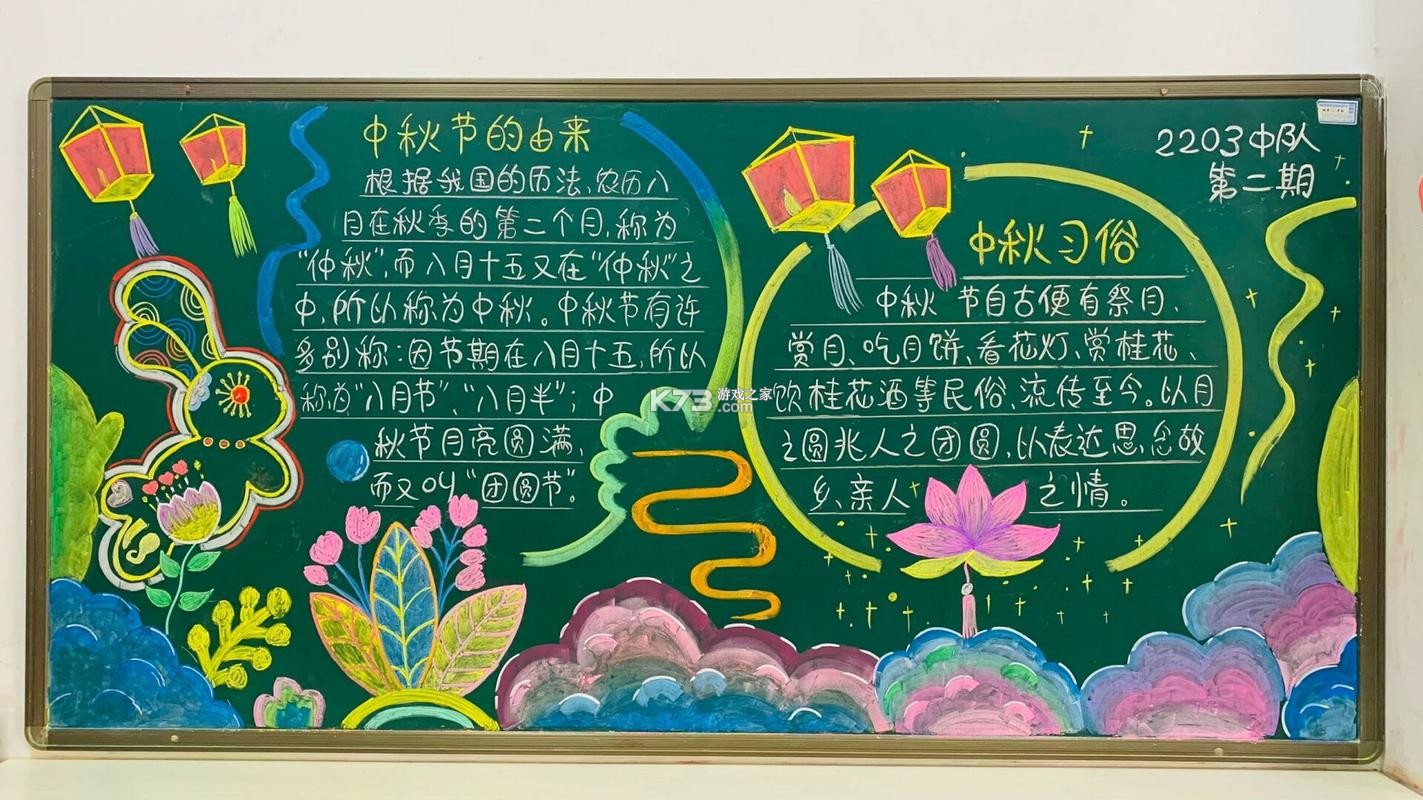 中秋节的由来
根据我国的历法,农历八
月在秋季的第二个月,称为
“仲秋”,而八月十五又在“仲秋”之
中,所以称为中秋。中秋节有许
多别称:因节期在八月十五,所以
称为“八月节”、“八月半”;中
秋节月亮圆满,
而又叫“团圆节”。
2203中队
第二期
中秋习俗
中秋节自古便有祭月、
赏月、吃月饼、看花灯、赏桂花、
饮桂花酒等民俗,流传至今。以月
之圆兆人之团圆,以表达思念故
乡、亲人之情。
K73 游戏之家
.com